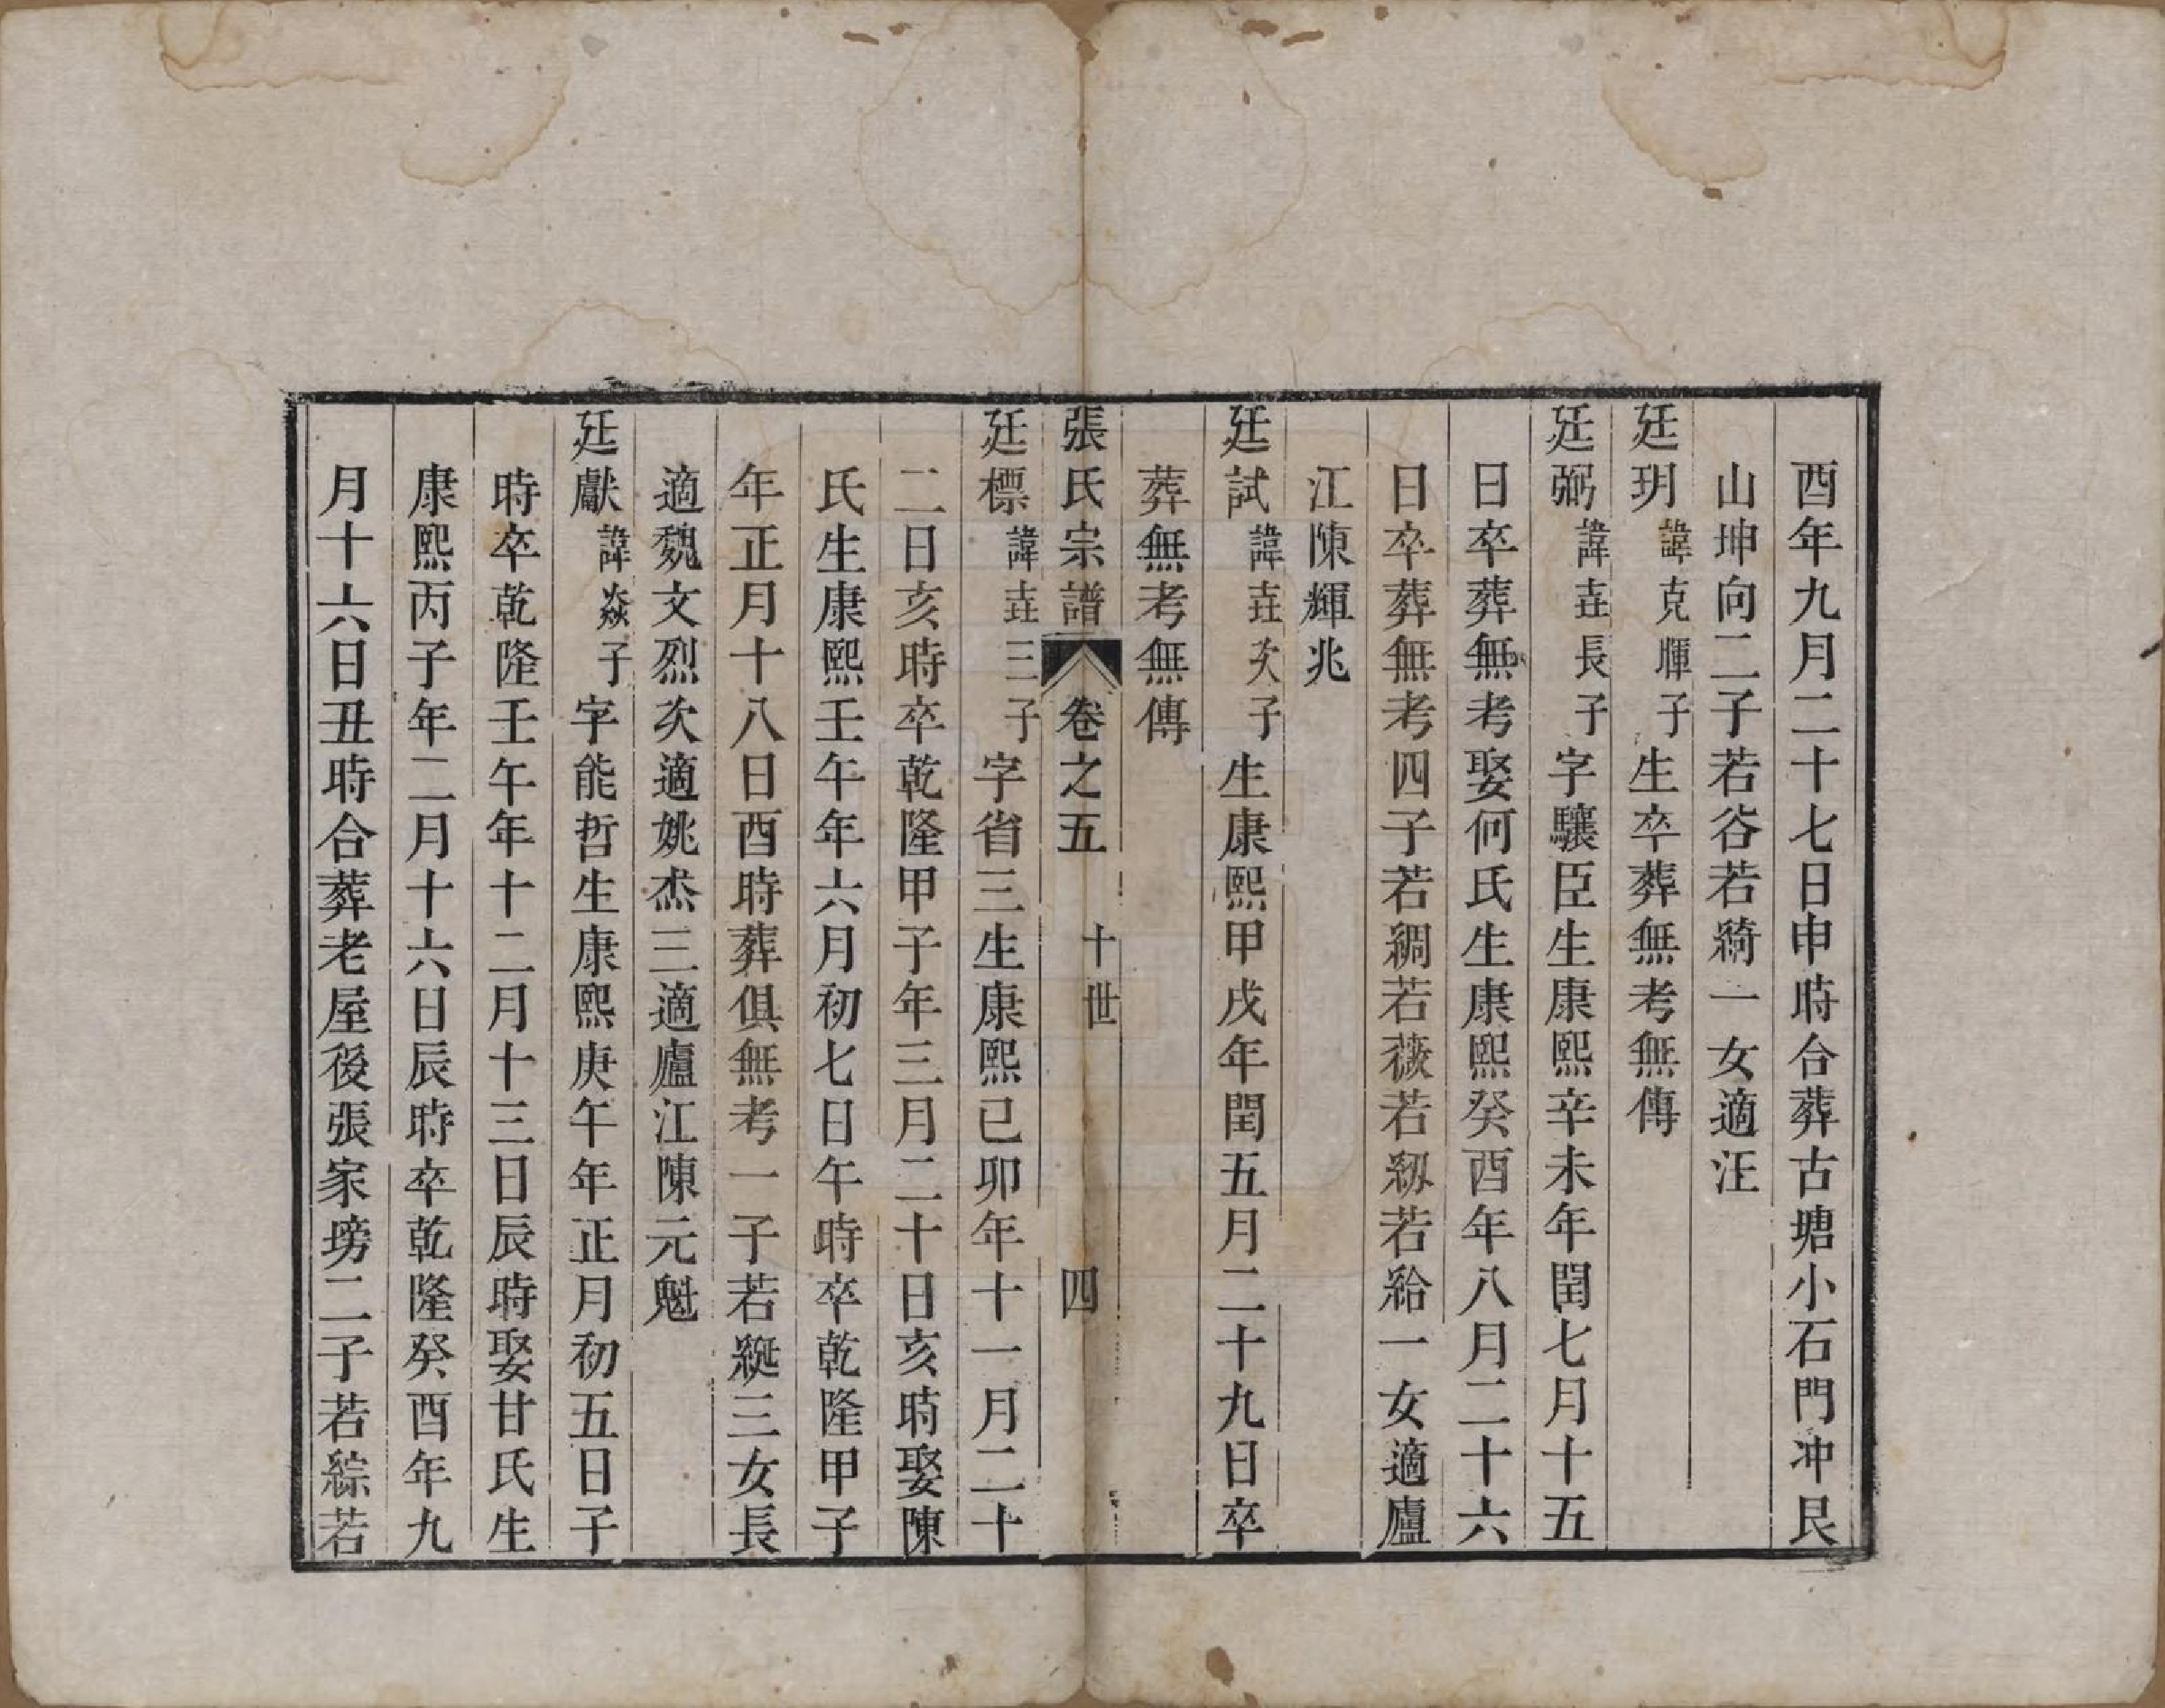 酉年九月二十七日申時合葬古塘小石門冲艮
山坤向二子若谷若綺一女適汪
廷玥諱克暉子生卒葬無考無傳
廷弼諱垚長子字驤臣生康熙辛未年閏七月十五
日卒葬無考娶何氏生康熙癸酉年八月二十六
日卒葬無考四子若綢若薇若紉若給一女適廬
江陳輝兆
廷試諱垚次子生康熙甲戌年閏五月二十九日卒
葬無考無傳
張氏宗譜 卷之五 十世 四
廷標諱垚三子字省三生康熙己卯年十一月二十
二日亥時卒乾隆甲子年三月二十日亥時娶陳
氏生康熙壬午年六月初七日午時卒乾隆甲子
年正月十八日酉時葬俱無考一子若綖三女長
適魏文烈次適姚杰三適廬江陳元魁
廷獻諱焱子字能哲生康熙庚午年正月初五日子
時卒乾隆壬午年十二月十三日辰時娶甘氏生
康熙丙子年二月十六日辰時卒乾隆癸酉年九
月十六日丑時合葬老屋後張家塝二子若綜若